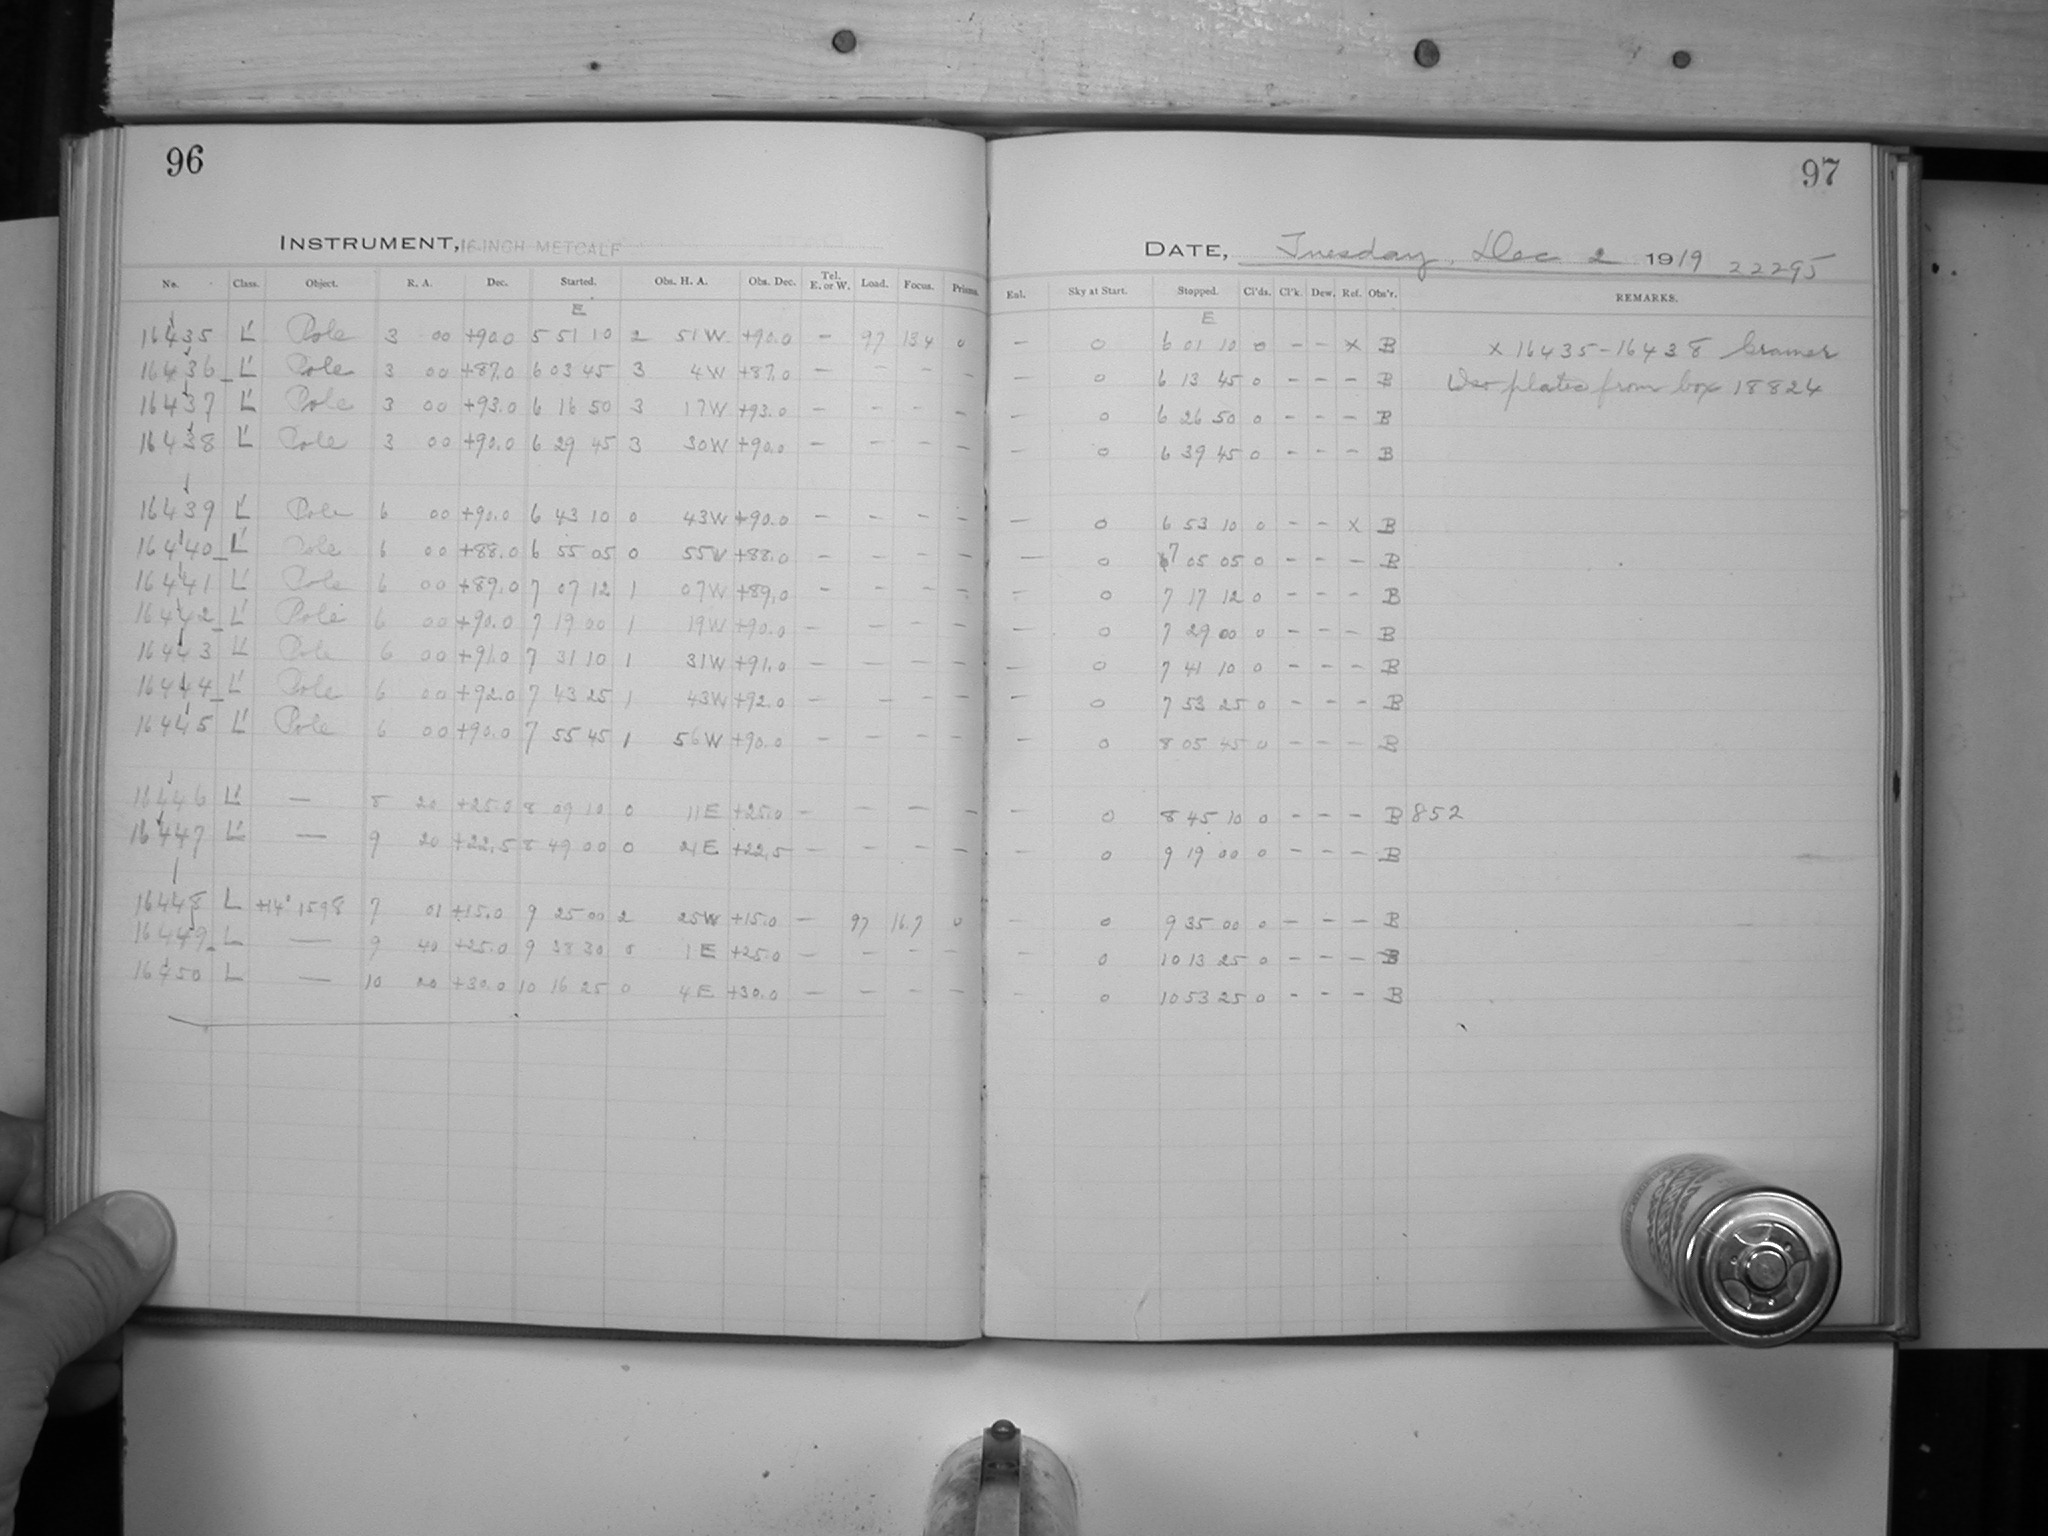 96
INSTRUMENT, 16-INCH METCALF
No. Class. Object. R. A. Dec. Started. Obs. H. A. Obs. Dec. Tel. E. or W. Load. Focus. Prisms.
E
16435 L' Pole 3 00 +90.0 5 51 10 2 51W +90.0 — 97 13.4 0
16436 L' Pole 3 00 +87.0 6 03 45 3 4W +87.0 — — — —
16437 L' Pole 3 00 +93.0 6 16 50 3 17W +93.0 — — — —
16438 L' Pole 3 00 +90.0 6 29 45 3 30W +90.0 — — — —
16439 L' Pole 6 00 +90.0 6 43 10 0 43W +90.0 — — — —
16440 L' Pole 6 00 +88.0 6 55 05 0 55W +88.0 — — — —
16441 L' Pole 6 00 +89.0 7 07 12 1 07W +89.0 — — — —
16442 L' Pole 6 00 +90.0 7 19 00 1 19W +90.0 — — — —
16443 L' Pole 6 00 +91.0 7 31 10 1 31W +91.0 — — — —
16444 L' Pole 6 00 +92.0 7 43 25 1 43W +92.0 — — — —
16445 L' Pole 6 00 +90.0 7 55 45 1 56W +90.0 — — — —
16446 L' — 8 20 +25.0 8 09 10 0 11E +25.0 — — — —
16447 L' — 9 20 +22.5 8 49 00 0 21E +22.5 — — — —
16448 L +14° 1598 7 01 +15.0 9 25 00 2 25W +15.0 — 97 16.7 0
16449 L — 9 40 +25.0 9 38 30 0 1E +25.0 — — — —
16450 L — 10 20 +30.0 10 16 25 0 4E +30.0 — — — —
97
DATE, Tuesday, Dec 2 1919 22295
Eul. Sky at Start. Stopped. Cl'ds. Cl'k. Dew. Ref. Obs'r. REMARKS.
E
— 0 6 01 10 0 — — x B x 16435-16438 Cramer
— 0 6 13 45 0 — — — B Iso plates from box 18824
— 0 6 26 50 0 — — — B
— 0 6 39 45 0 — — — B
— 0 6 53 10 0 — — x B
— 0 7 05 05 0 — — — B
— 0 7 17 12 0 — — — B
— 0 7 29 00 0 — — — B
— 0 7 41 10 0 — — — B
— 0 7 53 25 0 — — — B
— 0 8 05 45 0 — — — B
— 0 8 45 10 0 — — — B 852
— 0 9 19 00 0 — — — B
— 0 9 35 00 0 — — — B
— 0 10 13 25 0 — — — B
— 0 10 53 25 0 — — — B